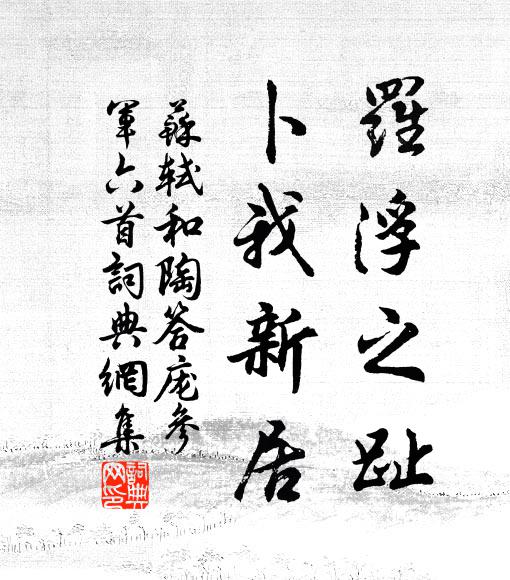 羅浮之趾
卜我新居
蘇軾和陶答庞參
軍六首詞典網集
詞典
网印